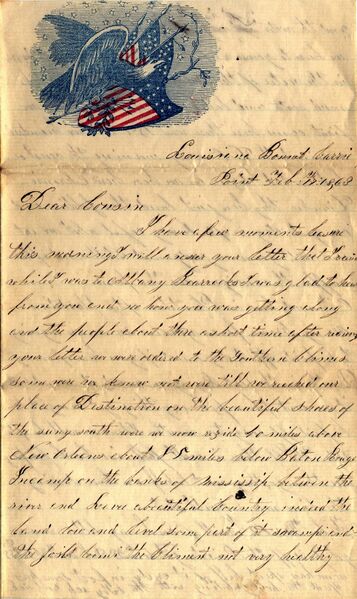 Louisiana Bonnet Carrie
Point Feb
Dear Cousin
I have a few moments leasure
this morning I will answer your letter that I
while I was to Albany Barracks I was glad to hear
from you and no how you was getting along
and the people about there a short time after
your letter we were ordered to the Southern Climes
som were we knew not were till we reached our
place of Destination on the beautiful shores of
the suny south were we now reside 60 miles above
New Orleans about 85 miles below Baton Rouge
Incamp on the banks of Mississip between the
river and have a beautiful Country indeed the
land low and level some part of it swamp and
the climent not very healthy